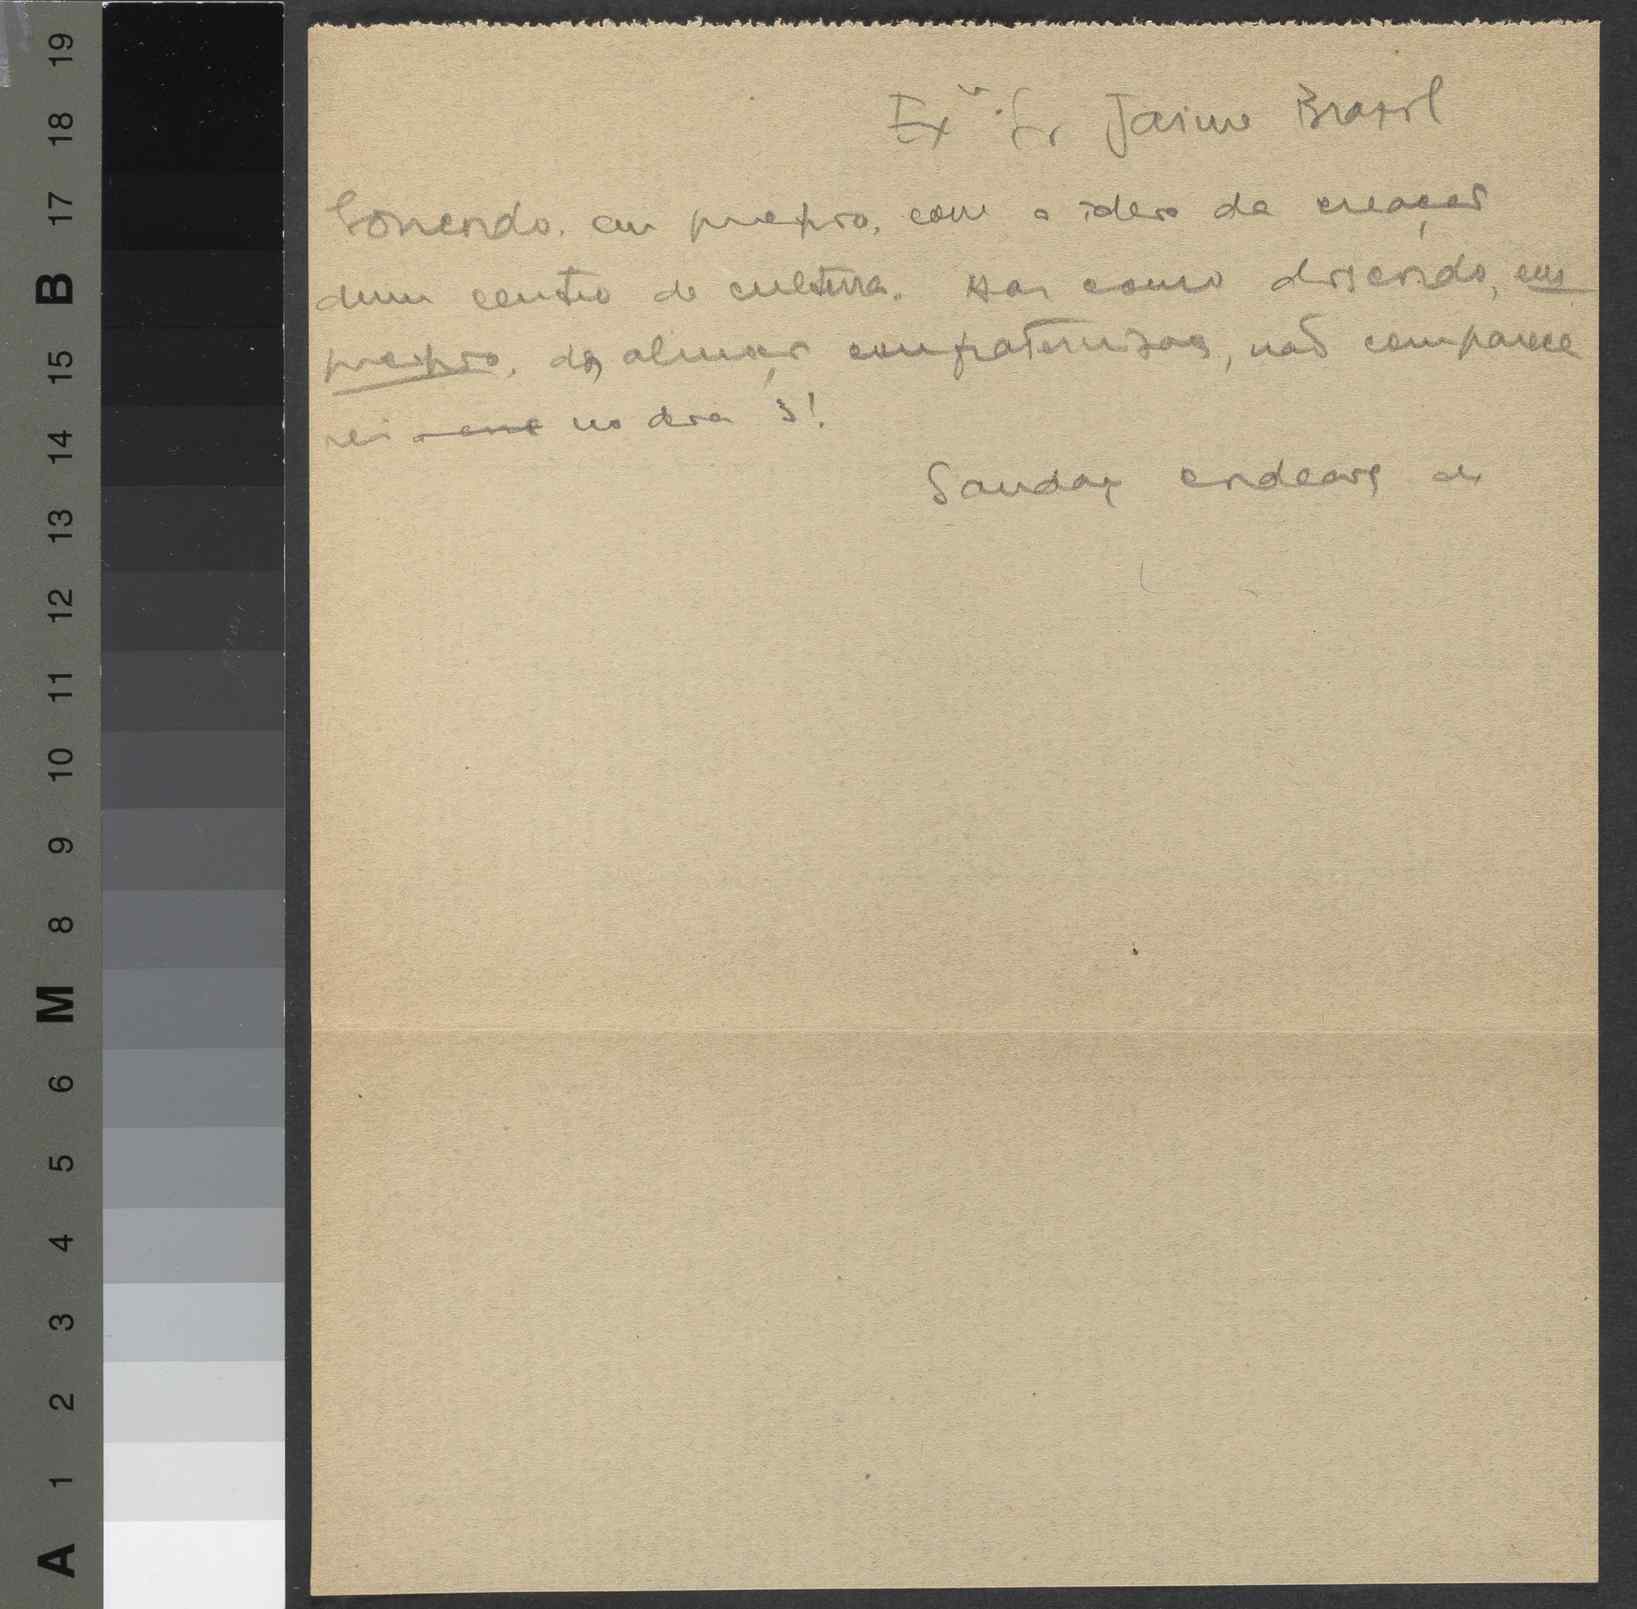 Exmo. Sr Jaime Brasil
Concordo, em principio, com a ideia da creação
dum centro de cultura. Mas como discordo, em
principio, dos almoços confraternisaes, não comparece
rei no dia 3!
Saudaç cordeaes de
19
18
17
B
15
14
13
12
11
10
9
8
M
6
5
4
3
2
1
A